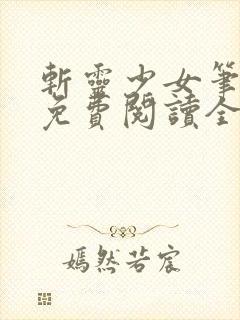 斬靈少女筆
免費閱讀全
嫣然若宸